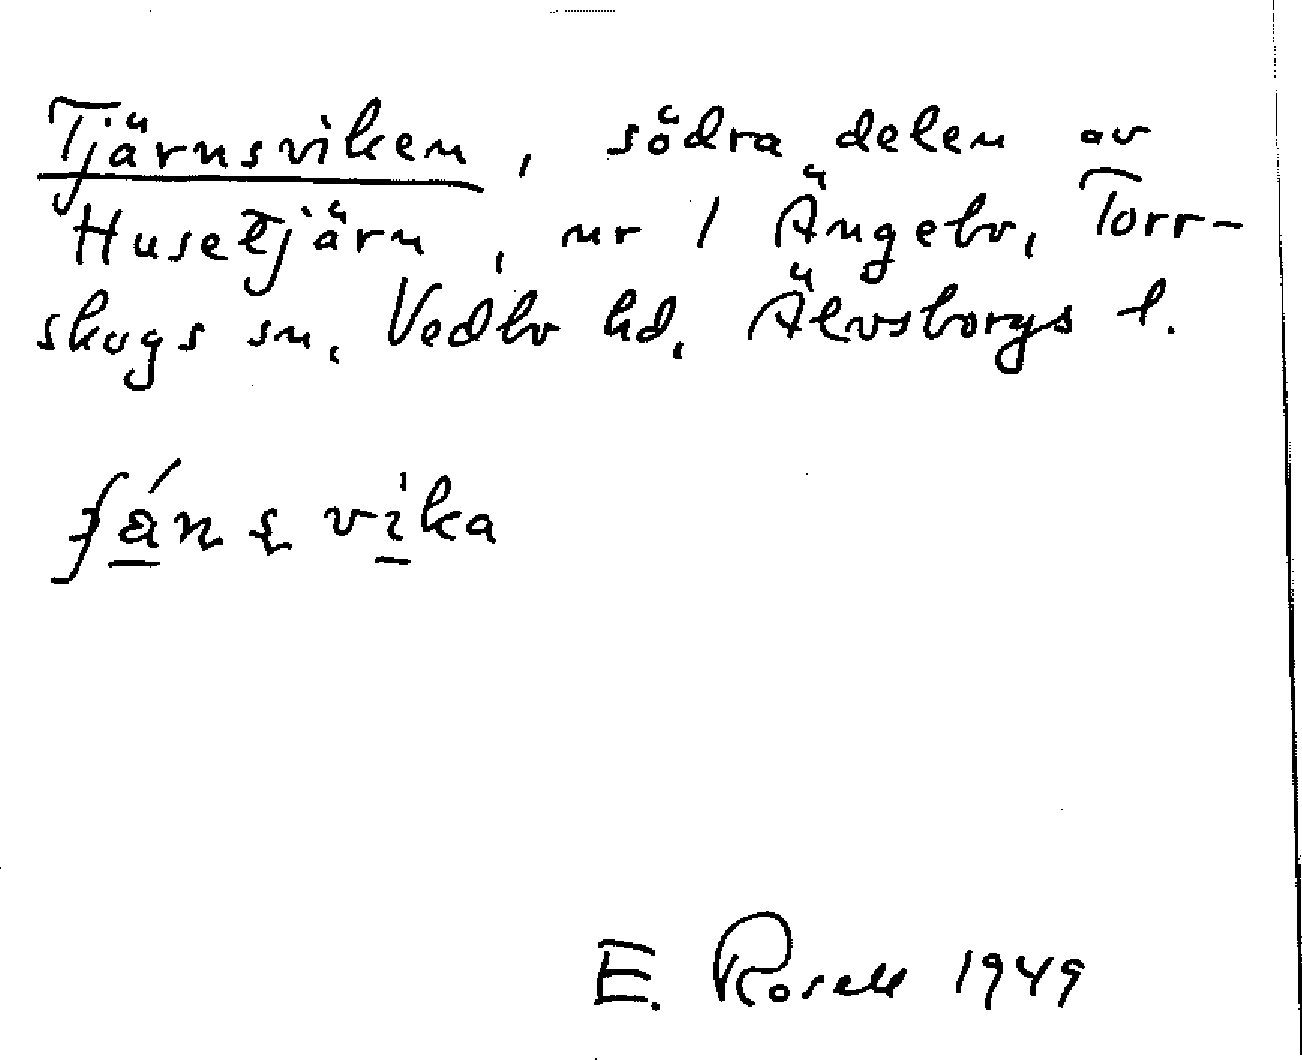 Tjärnsviken, södra delen av
Husetjärn, nr 1 Ängebo, Torr-
skogs sn. Vedbo hd, Älvsborgs l.
vika
E. Rosell 1949